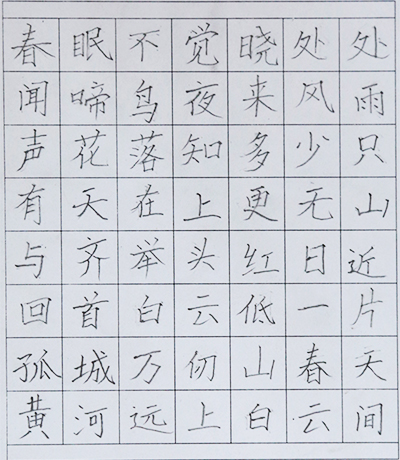 春眠不觉晓处处
闻啼鸟夜来风雨
声花落知多少只
有天在上更无山
与齐举头红日近
回首白云低一片
孤城万仞山春天
黄河远上白云间